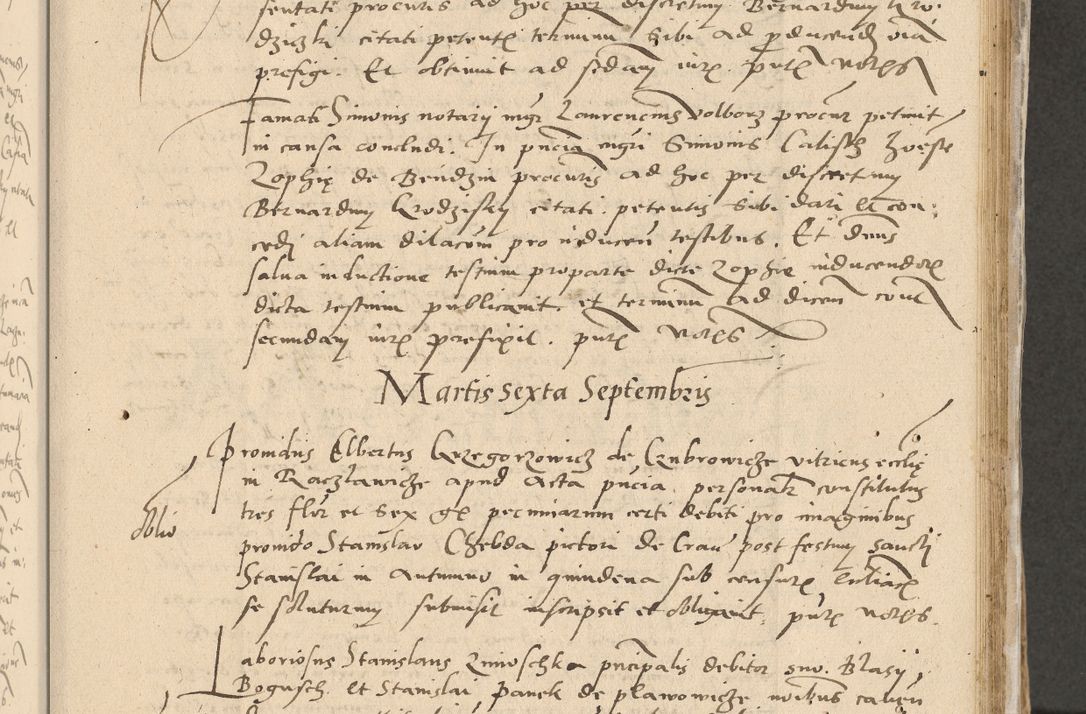 sentati procuris ad hoc per discretum Bernardum Kro-
dziczki citati petentis terminum sibi ad producendum
prefigi. Et obtinuit ad secundam iuris. presentibus
Famati Simonis notarij mgri Laurencius Volborz procur petiuit
in causa concludi. In pncia mgri Simonis Calisch Zoephe
Zophię de Bendzin procuris ad hoc per discretum
Bernardum Krodzisky citati petentis sibi dari et con-
cedi aliam dilacem pro inducen testibus. Et dnus
salua inductione testium pro parte dicte Zophie inducendor
dicta testium publicauit et terminum ad dicen cont
secundam iuris prefixit. pntis notis
Martis sexta Septembris
Prouidus Albertus Grzegorzowicz de Cubrowicze vitricus ecclię
in Raczlawicze apud Acta pncia personalr constitutus
tres flor et sex gr pecuniarum certi debiti pro imaginibus
prouido Stanislao Chebda pictori de Crac post festum sancti
Stanislai in Autumno in quindena sub censuris
oblio
se soluturum submisit inscripsit et obligauit, pntis notis.
Laboriosus Stanislaus Kmioschka pncipalis debitor suo. Blasij
Bogusch et Stanislai Panek de plawowicze noibus